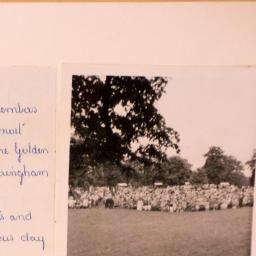 embers
most
he Golden
ckingham
s and
ous day